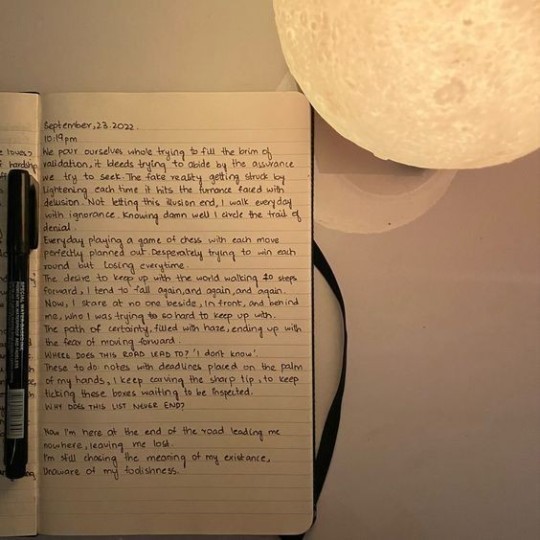 September, 23. 2022.
10:19pm
We pour ourselves whole trying to fill the brim of
validation, it bleeds trying to abide by the assurance
we try to seek. The fake reality getting struck by
lightening each time it hits the furnance faced with
delusion. Not letting this illusion end, I walk everyday
with ignorance. Knowing damn well I circle the trail of
denial.
Everyday playing a game of chess with each move
perfectly planned out. Desperately trying to win each
round but losing everytime.
The desire to keep up with the world walking 10 steps
forward, I tend to fall again, and again, and again.
Now, I stare at no one beside, in front, and behind
me, who I was trying to so hard to keep up with.
The path of certainty, filled with haze, ending up with
the fear of moving forward.
WHERE DOES THIS ROAD LEAD TO? 'I don't know'.
These to do notes with deadlines placed on the palm
of my hands, I keep carving the sharp tip, to keep
ticking these boxes waiting to be inspected.
WHY DOES THIS LIST NEVER END?
Now I'm here at the end of the road leading me
nowhere, leaving me lost.
I'm still chasing the meaning of my existance,
Unaware of my foolishness.